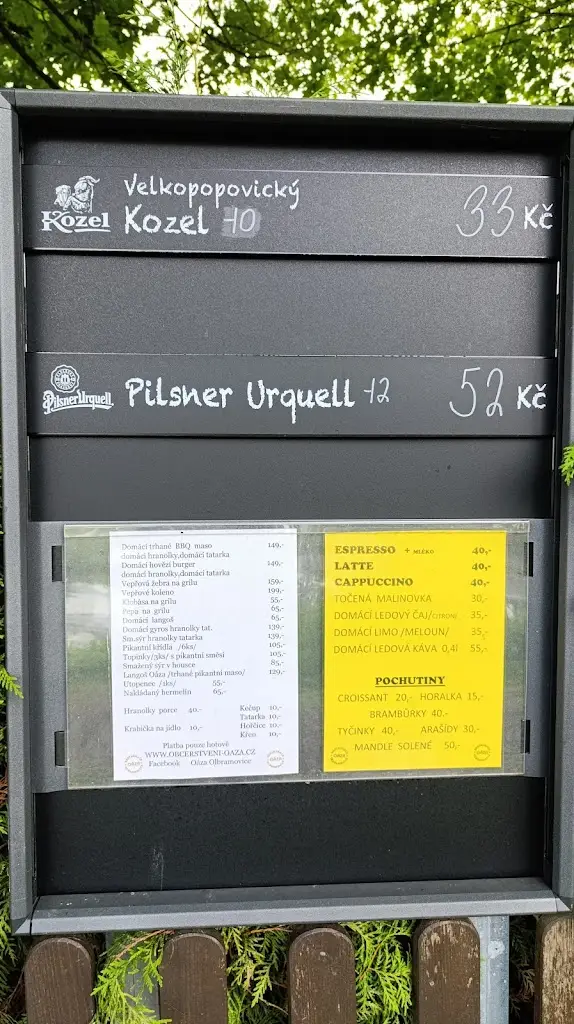 Velkopopovický
Kozel
Kozel 10 33 Kč
Pilsner Urquell
Pilsner Urquell 12 52 Kč
Domácí trhané BBQ maso 149,-
domácí hranolky,domácí tatarka
Domácí hovězí burger 149,-
domácí hranolky,domácí tatarka
Vepřová žebra na grilu 159,-
Vepřové koleno 199,-
Klobása na grilu 55,-
Pepa na grilu 65,-
Domácí langoš 65,-
Domácí gyros hranolky tat. 139,-
Sm.sýr hranolky tatarka 139,-
Pikantní křídla /6ks/ 105,-
Topinky/3ks/ s pikantní směsí 105,-
Smažený sýr v housce 85,-
Langoš Oáza /trhané pikantní maso/ 129,-
Utopenec /1ks/ 55,-
Nakládaný hermelín 65,-
Hranolky porce 40.- Kečup 10,-
Tatarka 10,-
Krabička na jídlo 10,- Hořčice 10,-
Křen 10,-
Platba pouze hotově
WWW.OBCERSTVENI-OAZA.CZ
Facebook Oáza Olbramovice
ESPRESSO + MLÉKO 40,-
LATTE 40,-
CAPPUCCINO 40,-
TOČENÁ MALINOVKA 30,-
DOMÁCÍ LEDOVÝ ČAJ/CITRON/ 35,-
DOMÁCÍ LIMO /MELOUN/ 35,-
DOMÁCÍ LEDOVÁ KÁVA 0,4l 55,-
POCHUTINY
CROISSANT 20,- HORALKA 15,-
BRAMBŮRKY 40.-
TYČINKY 40,- ARAŠÍDY 30,-
MANDLE SOLENÉ 50,-